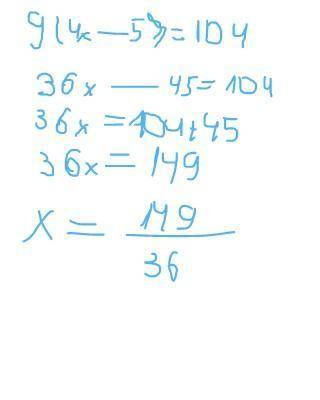 9(4x — 5) = 104
36x — 45 = 104
36x = 104 + 45
36x = 149
X = 149
36